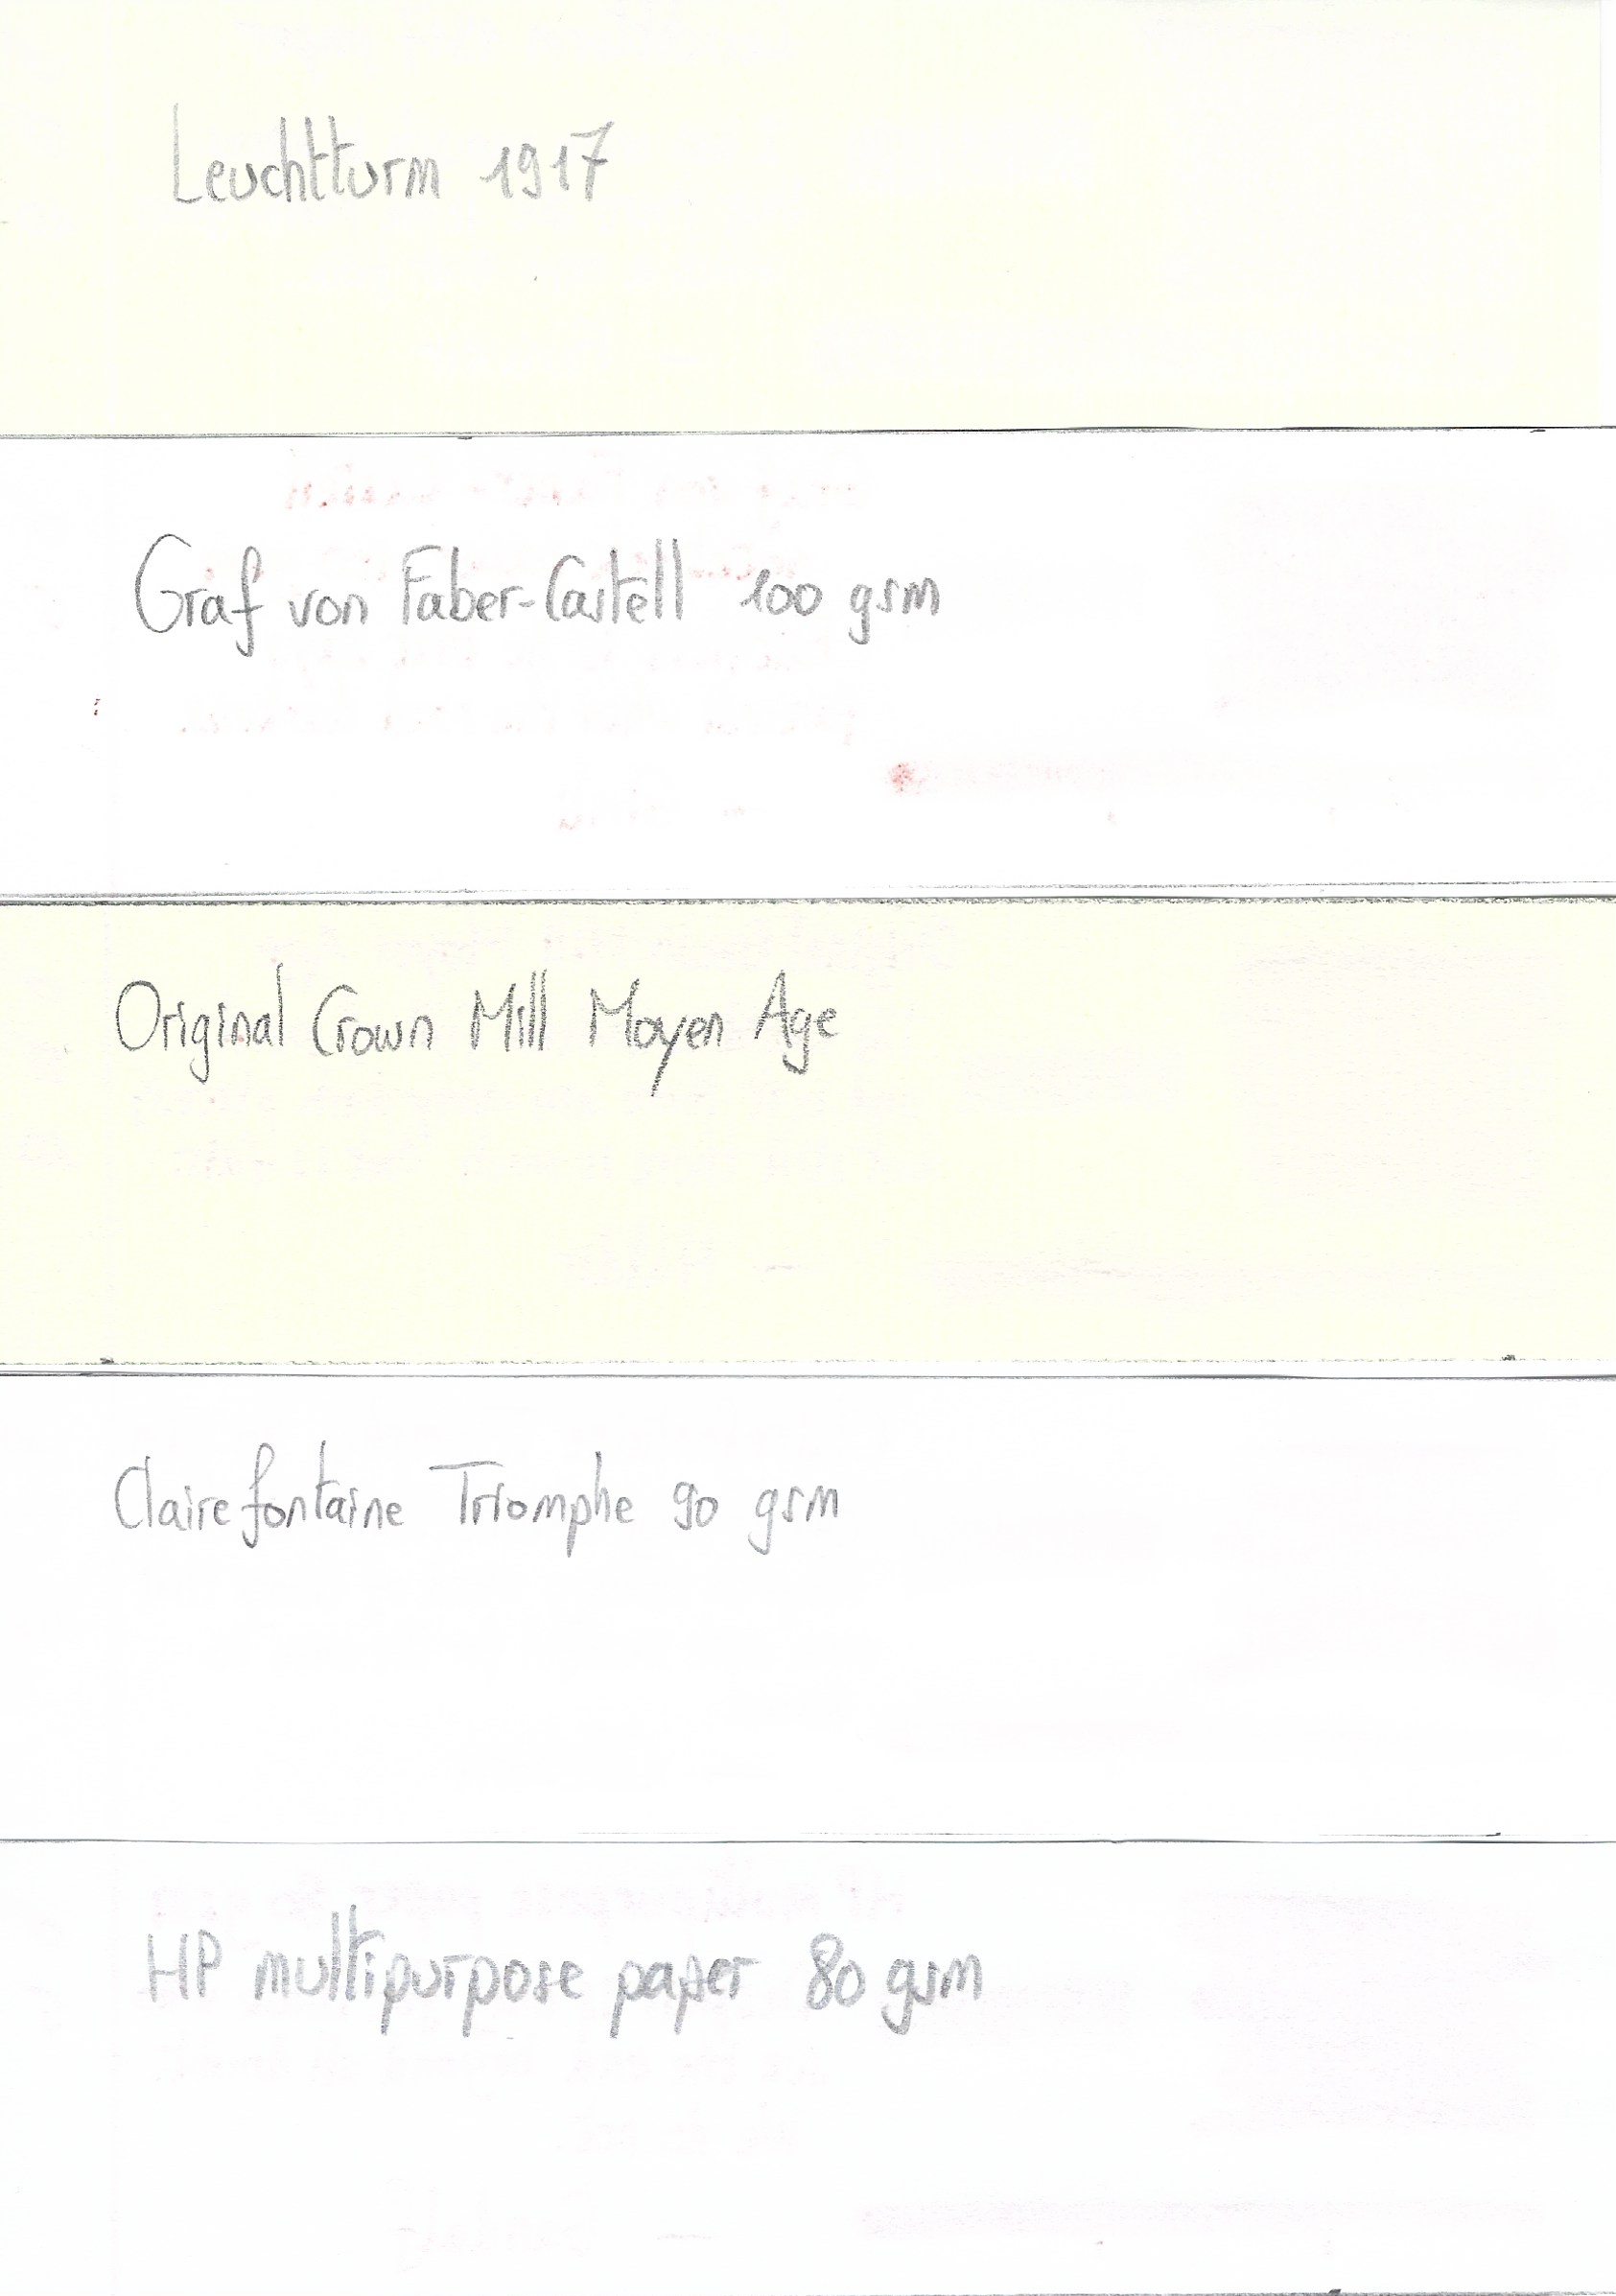 Leuchtturm 1917
Graf von Faber-Castell 100 gsm
Original Crown Mill Moyen Age
Clairefontaine Triomphe 90 gsm
HP multipurpose paper 80 gsm